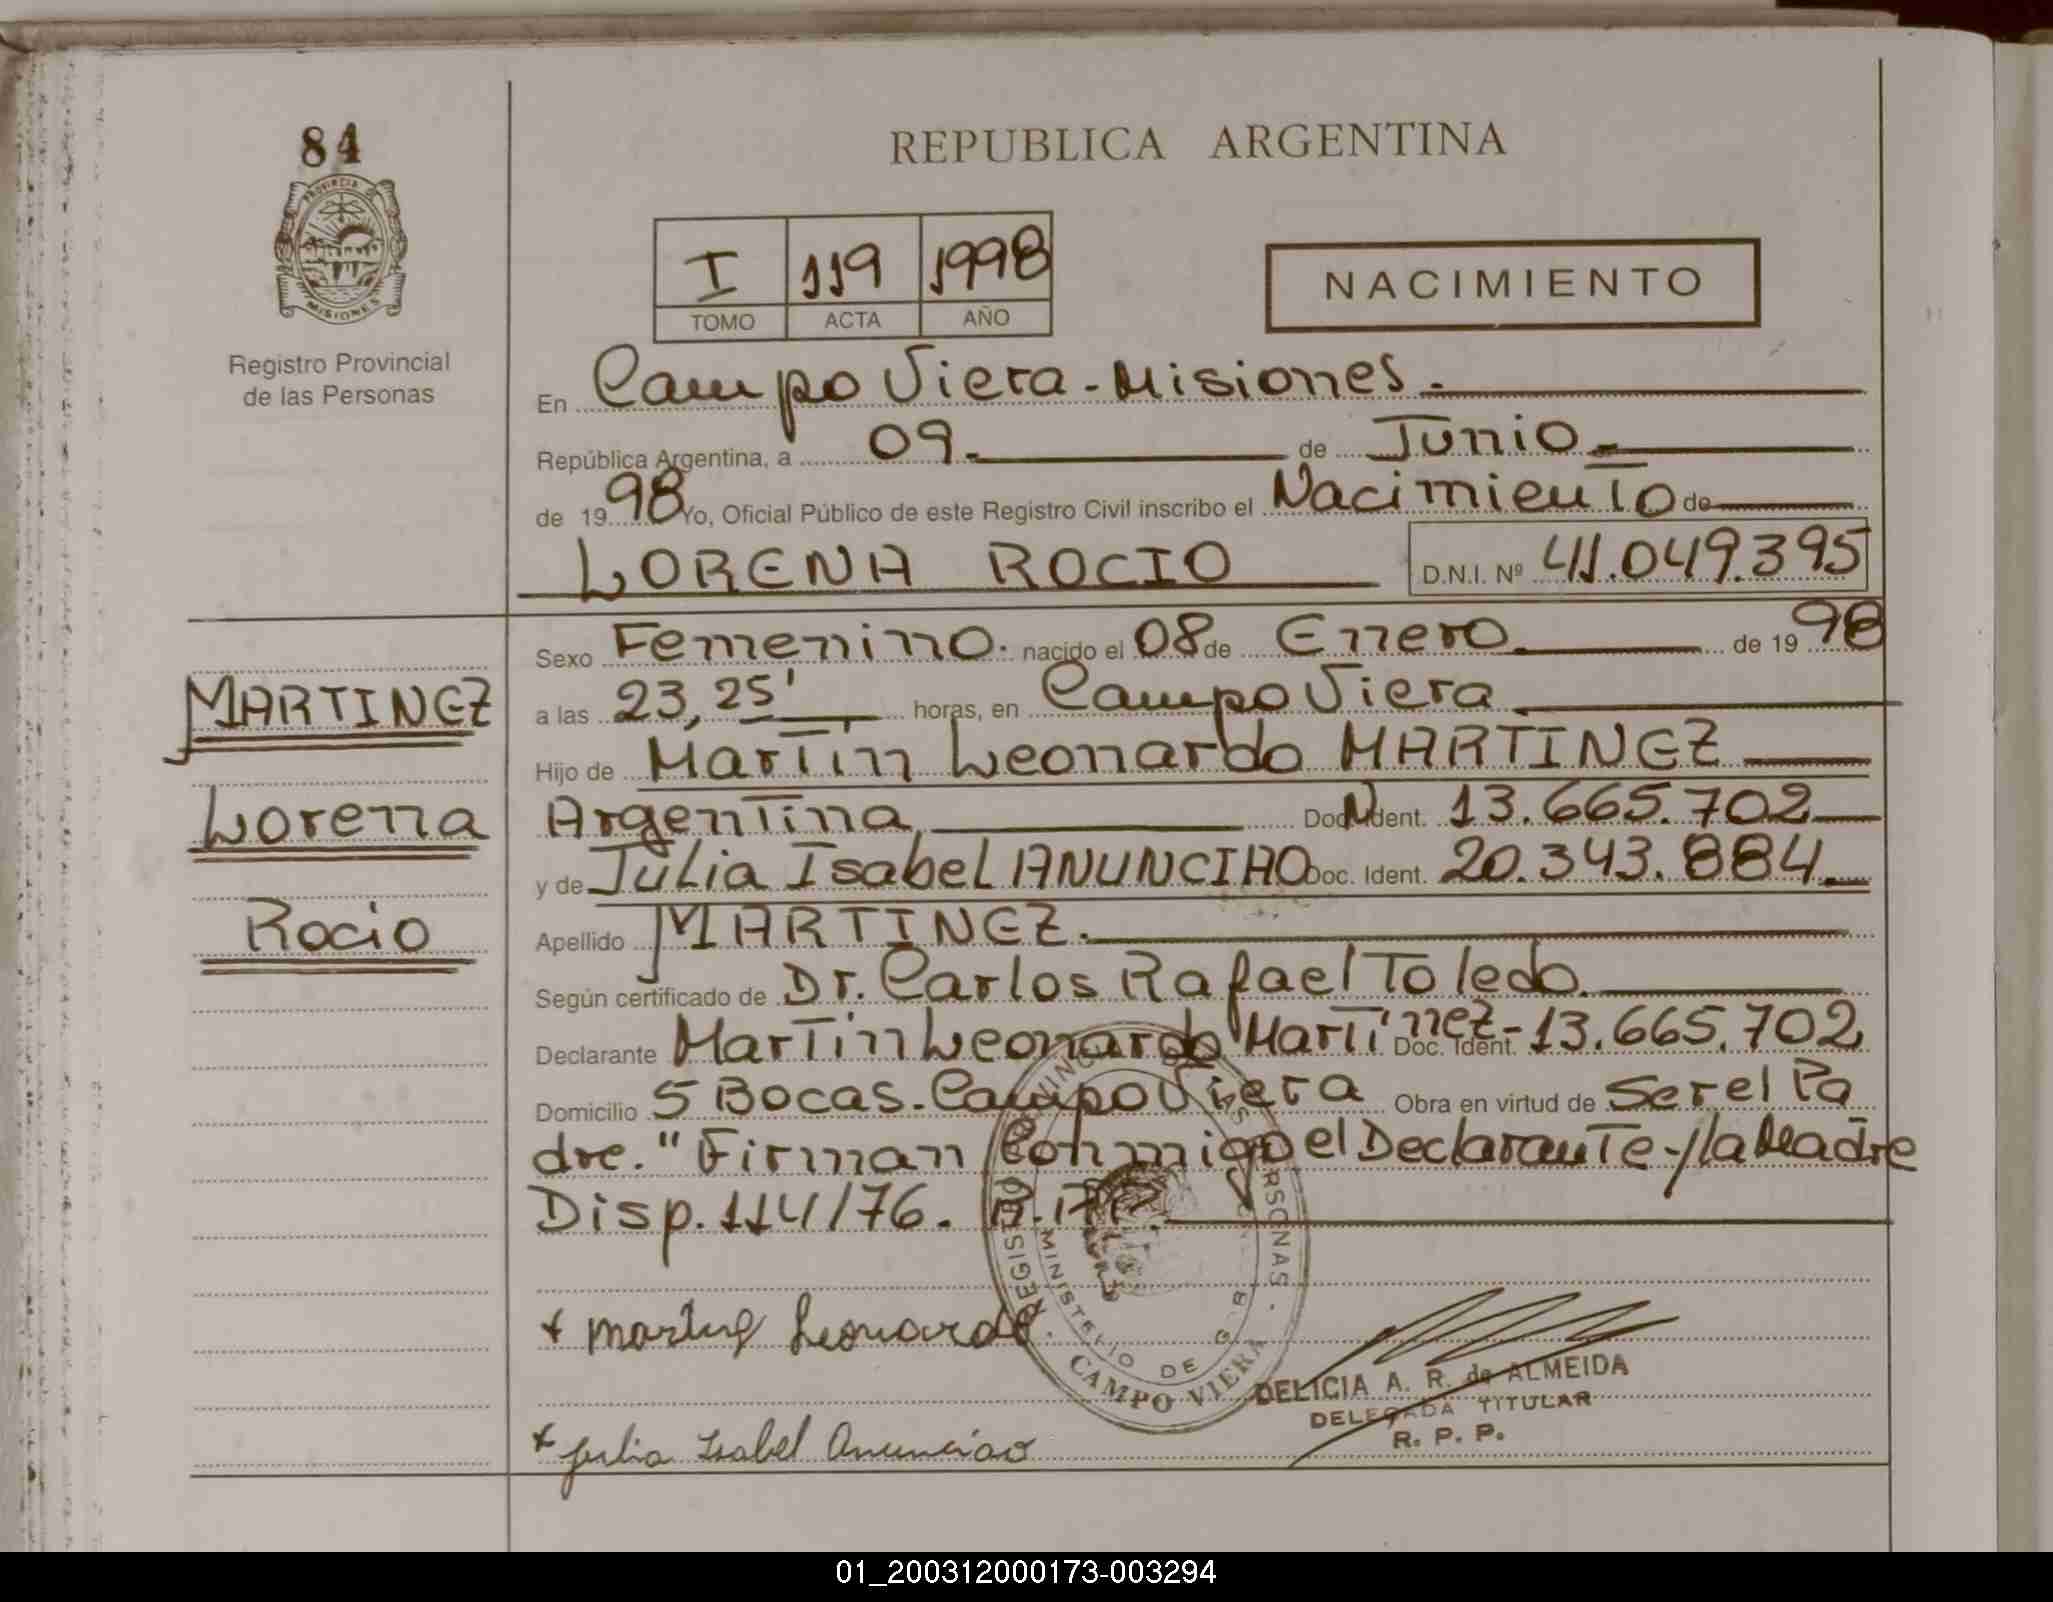 84
PROVINCIA DE
MISIONES
Registro Provincial
de las Personas
REPUBLICA ARGENTINA
I 119 1998
TOMO ACTA AÑO
NACIMIENTO
En Campo Viera - Misiones.
República Argentina, a 09. de Junio.
de 19 98 Yo, Oficial Público de este Registro Civil inscribo el Nacimiento de
LORENA ROCIO D.N.I. Nº 41.049.395
Sexo Femenino. nacido el 08 de Enero. de 19 98
MARTINEZ
a las 23,25' horas, en Campo Viera
Hijo de Martín Leonardo MARTINEZ
Lorena
Argentina, Doc. Ident. N 13.665.702
y de Julia Isabel ANUNCIAO Doc. Ident. 20.343.884.
Rocio
Apellido MARTINEZ.
Según certificado de Dr. Carlos Rafael Toledo.
Declarante Martín Leonardo Martínez - Doc. Ident. 13.665.702
Domicilio 5 Bocas. Campo Viera Obra en virtud de Ser el Pa
dre." Firman Conmigo el Declarante y la Madre
Disp. 114/76.
REGISTRO PERSONAS.
MINISTERIO DE GOB
CAMPO VIERA
+ Martinez Leonardo.
DELICIA A. R. de ALMEIDA
DELEGADA TITULAR
R. P. P.
+ Julia Isabel Anunciao
01_200312000173-003294